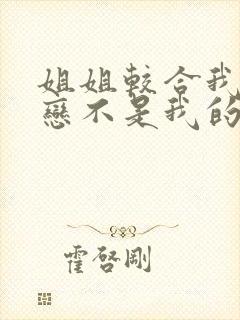 姐姐較合我
戀不是我的
霍啓剛